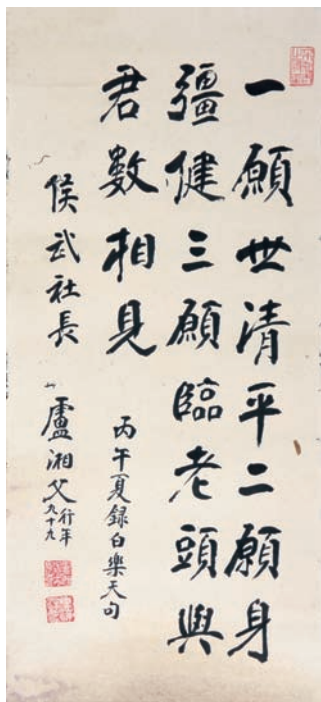 一願世清平二願身
彊健三願臨老頭與
君數相見
丙午夏録白樂天句
侯武社長
盧湘父行年九十九